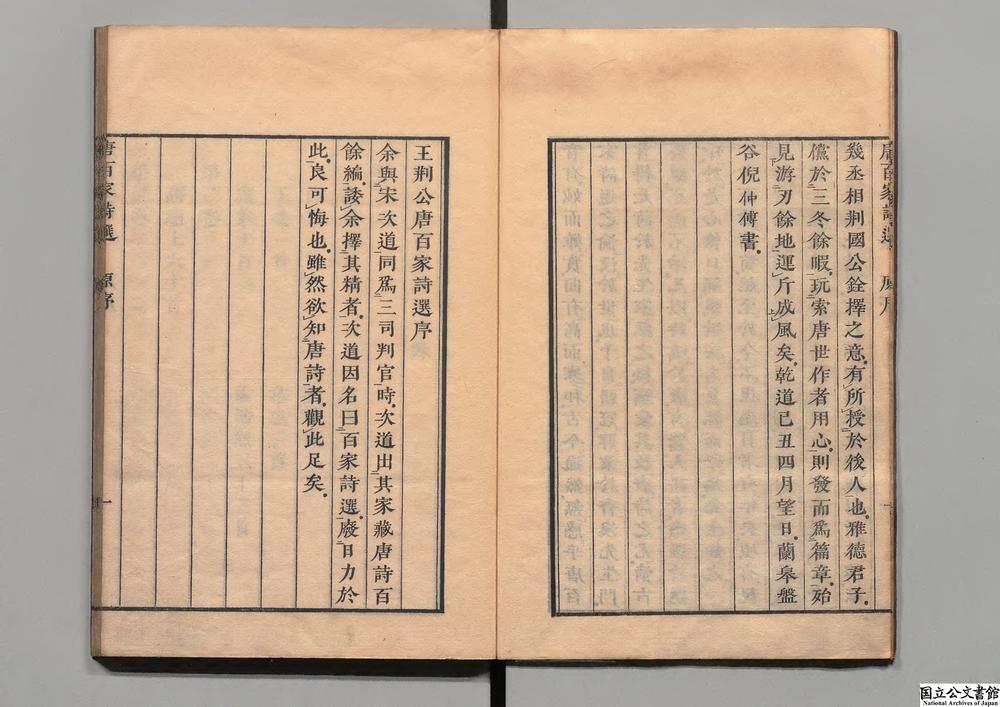 幾丞相荆國公銓擇之意有所授於後人也雅德君子
儻於三冬餘暇玩索唐世作者用心則發而爲篇章殆
見游刃餘地運斤成風矣乾道己丑四月望日蘭皋盤
谷倪仲傅書
王荆公唐百家詩選序
余與宋次道同爲三司判官時次道出其家藏唐詩百
餘編諉余擇其精者次道因名曰百家詩選廢日力於
此良可悔也雖然欲知唐詩者觀此足矣
唐百家詩選
原序
一
国立公文書館
National Archives of Japan